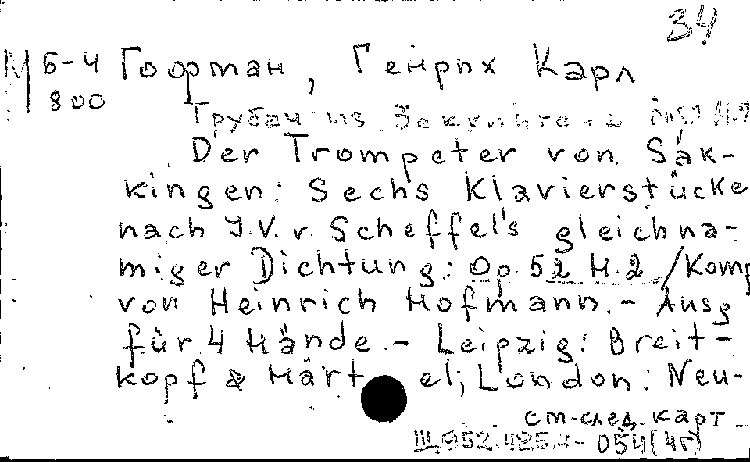 34
М 6-4 Гофман, Генрих Карл
800
Трубач из
Der Trompeter von Säk-
kingen: Sechs Klavierstücke
nach J.V. v. Scheffel's gleichna-
miger Dichtung: Op. 52 H.2 / Komp
von Heinrich Hofmann. - Ausg
für 4 Hände. - Leipzig: Breit-
kopf & Härt el; London: Neu-
см. след. карт
054(4г)